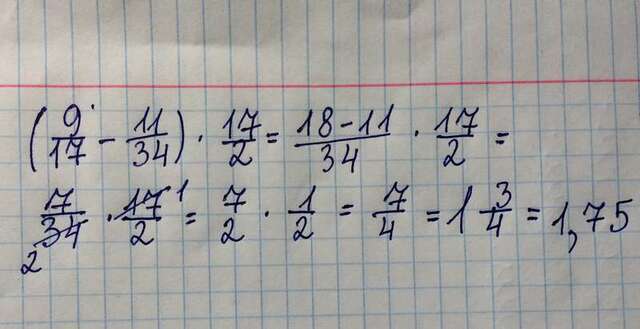 (9/17 - 11/34) · 17/2 = (18-11)/34 · 17/2 =
7/34 · 17/2 = 7/2 · 1/2 = 7/4 = 1 3/4 = 1,75
2 1